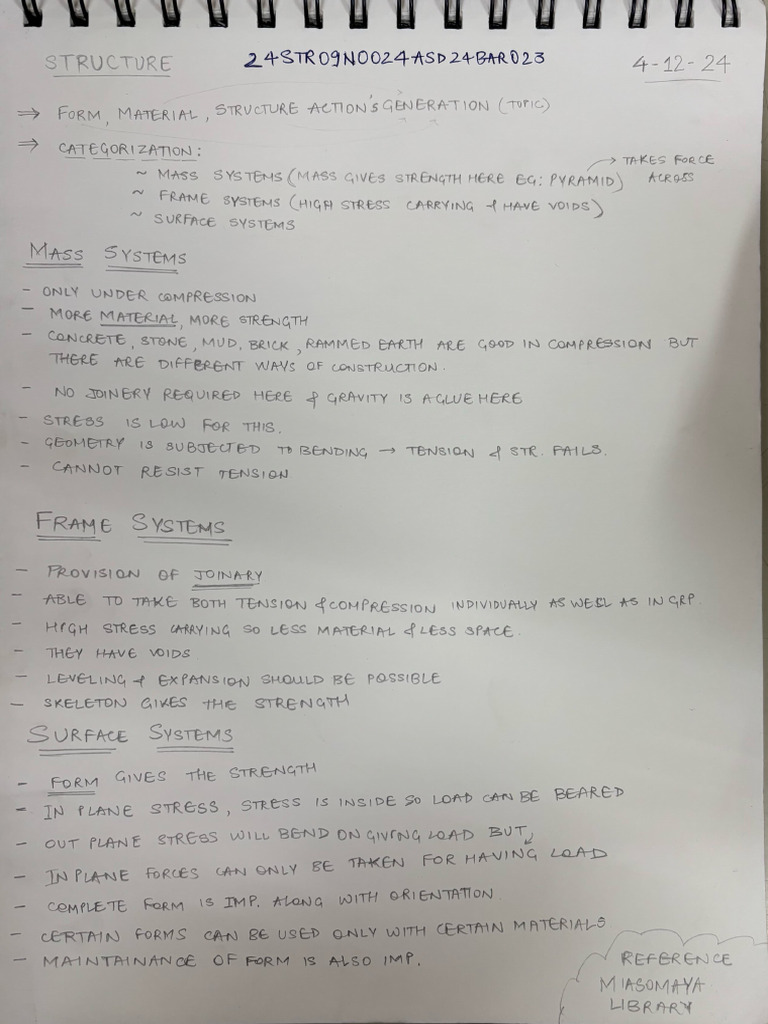 STRUCTURE 24STR09N0024ASD24BAR023 4-12-24
⇒ FORM, MATERIAL, STRUCTURE ACTION'S GENERATION (TOPIC)
⇒ CATEGORIZATION:
~ MASS SYSTEMS (MASS GIVES STRENGTH HERE EG: PYRAMID) → TAKES FORCE ACROSS
~ FRAME SYSTEMS (HIGH STRESS CARRYING & HAVE VOIDS)
~ SURFACE SYSTEMS
MASS SYSTEMS
- ONLY UNDER COMPRESSION
- MORE MATERIAL, MORE STRENGTH
- CONCRETE, STONE, MUD, BRICK, RAMMED EARTH ARE GOOD IN COMPRESSION BUT
THERE ARE DIFFERENT WAYS OF CONSTRUCTION.
- NO JOINERY REQUIRED HERE & GRAVITY IS A GLUE HERE
- STRESS IS LOW FOR THIS.
- GEOMETRY IS SUBJECTED TO BENDING → TENSION & STR. FAILS.
- CANNOT RESIST TENSION
FRAME SYSTEMS
- PROVISION OF JOINARY
- ABLE TO TAKE BOTH TENSION & COMPRESSION INDIVIDUALLY AS WELL AS IN GRP.
- HIGH STRESS CARRYING SO LESS MATERIAL & LESS SPACE.
- THEY HAVE VOIDS
- LEVELING & EXPANSION SHOULD BE POSSIBLE
- SKELETON GIVES THE STRENGTH
SURFACE SYSTEMS
- FORM GIVES THE STRENGTH
- IN PLANE STRESS, STRESS IS INSIDE SO LOAD CAN BE BEARED
- OUT PLANE STRESS WILL BEND ON GIVING LOAD BUT,
- IN PLANE FORCES CAN ONLY BE TAKEN FOR HAVING LOAD
- COMPLETE FORM IS IMP. ALONG WITH ORIENTATION.
- CERTAIN FORMS CAN BE USED ONLY WITH CERTAIN MATERIALS
- MAINTAINANCE OF FORM IS ALSO IMP.
REFERENCE
MIASOMAYA
LIBRARY